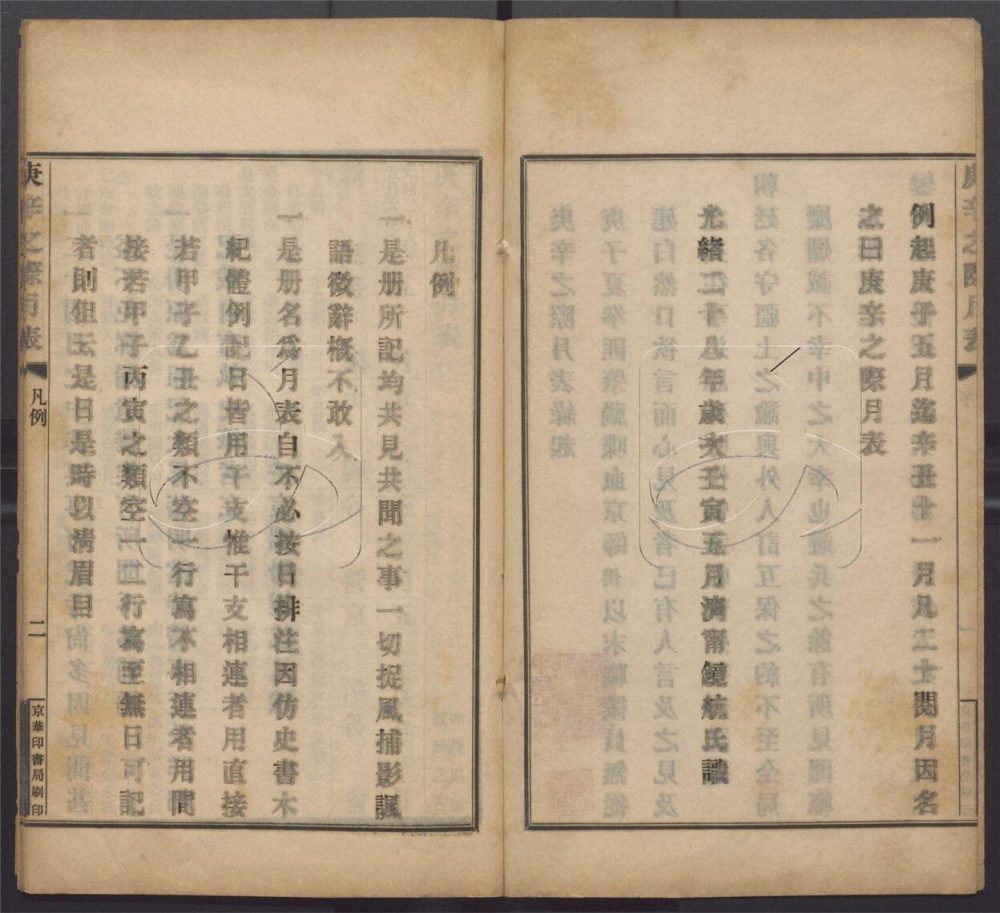 庚辛之際月表
例起庚子五月迄辛丑十一月凡二十閱月因名
之曰庚辛之際月表
光緒二十八年歲次壬寅五月濟甯鏡航氏識
凡例
一是册所記均共見共聞之事一切捉風捕影諷
語微辭概不敢入
一是册名爲月表自不必按日排注因仿史書本
紀體例記日皆用干支惟干支相連者用直接
若甲子乙丑之類不空一行寫不相連者用間
接若甲子丙寅之類空一二行寫至無日可記
者則但云是日是時以淸眉目
庚辛之際月表 凡例 二 京華印書局刷印